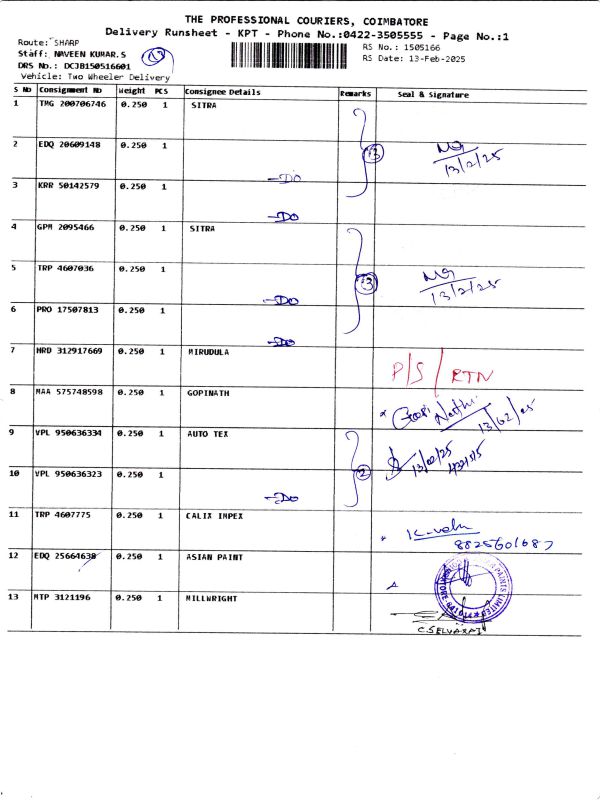 THE PROFESSIONAL COURIERS, COIMBATORE
Delivery Runsheet - KPT - Phone No.:0422-3505555 - Page No.:1
Route: SHARP
RS No.: 1505166
Staff: NAVEEN KUMAR.S
RS Date: 13-Feb-2025
DRS No.: DCJB150516601
Vehicle: Two Wheeler Delivery
S No Consignment No Weight PCS Consignee Details Remarks Seal & Signature
1 TMG 200706746 0.250 1 SITRA
2 EDQ 20609148 0.250 1 -DO
13/2/25
3 KRR 50142579 0.250 1 -DO
4 GPM 2095466 0.250 1 SITRA
5 TRP 4607036 0.250 1 -DO
3
13/2/25
6 PRO 17507813 0.250 1 -DO
7 HRD 312917669 0.250 1 MIRUDULA P/S/RTN
8 MAA 575748598 0.250 1 GOPINATH
13/02/25
9 VPL 950636334 0.250 1 AUTO TEX
2 13/02/25
10 VPL 950636323 0.250 1 -DO
11 TRP 4607775 0.250 1 CALIX IMPEX
8825601687
12 EDQ 25664638 0.250 1 ASIAN PAINT
13 MTP 3121196 0.250 1 MILLWRIGHT
C.SELVARAJ